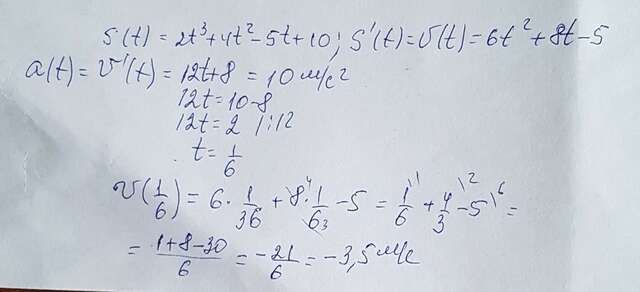 S(t) = 2t³+4t²-5t+10; S'(t)=v(t)=6t²+8t-5
a(t)=v'(t)=12t+8 = 10 м/с²
12t=10-8
12t=2 |:12
t=1/6
v(1/6)=6·1/36+8·1/6-5=1/6+4/3-5=
=(1+8-30)/6=-21/6=-3,5м/с